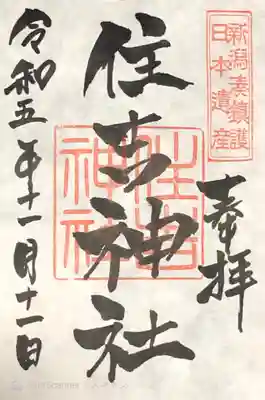 新潟湊鎮護
日本遺産
奉拝
住吉神社
住吉神社
令和五年十一月十一日